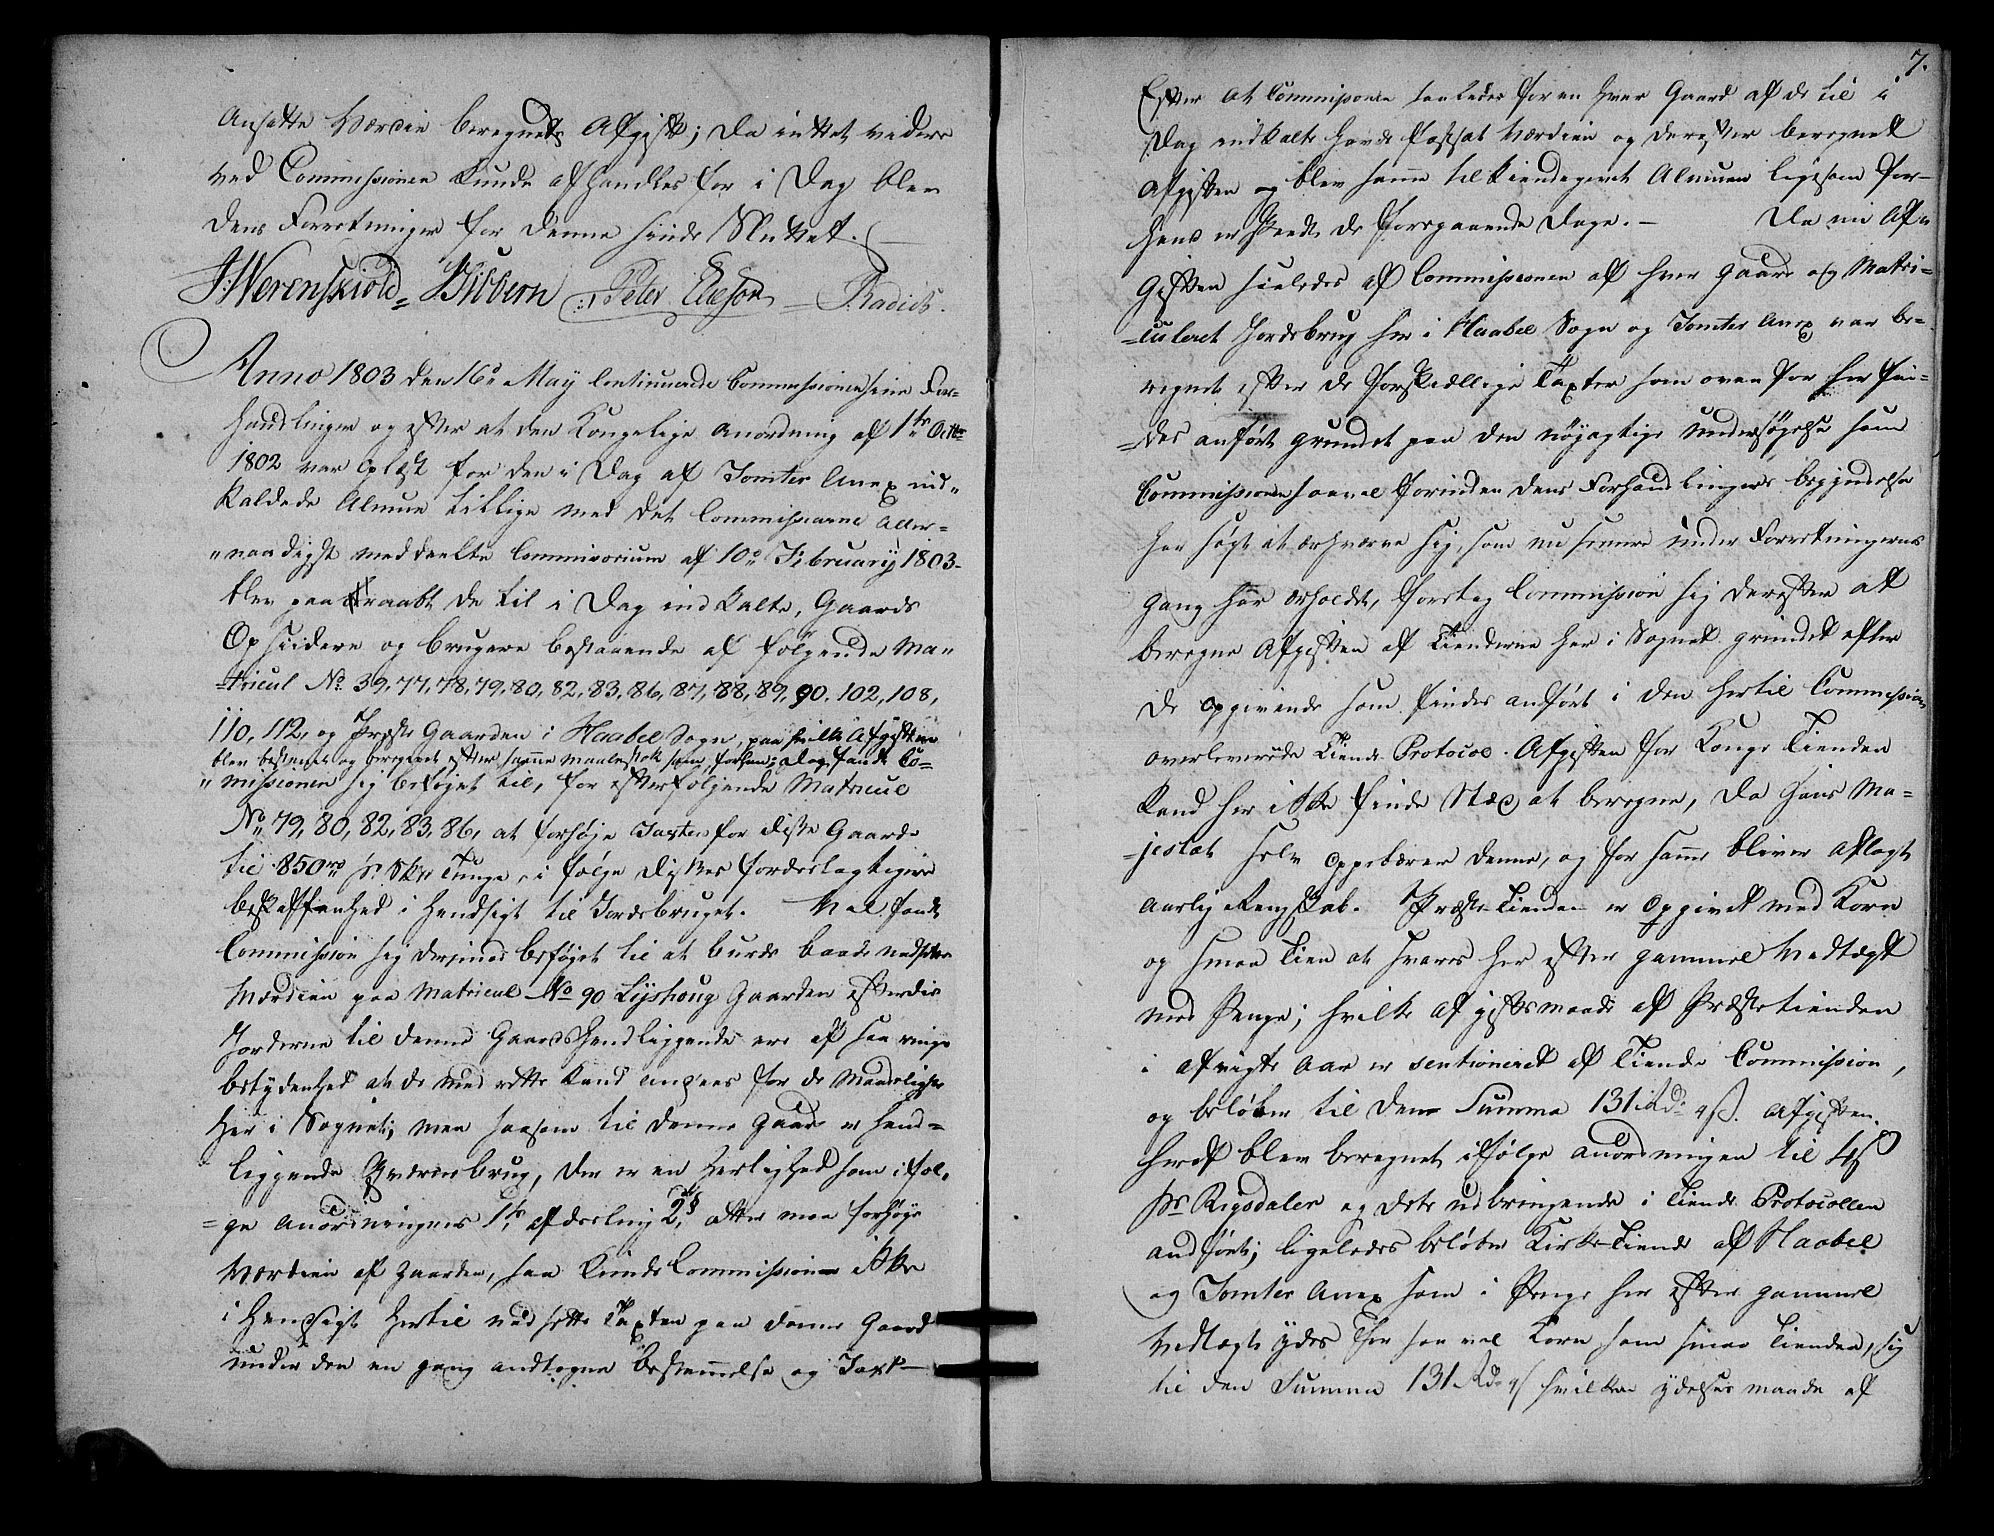 Ansatte Værdie beregnede Afgift; da intet videre
ved Commissionen kunde afhandles for i Dag blev
dens Forretninger for denne sinde Sluttet.
J Werenskiold= Sibbern Peter Elieson P. Radich.
Anno 1803 den 16de May Continuerede Commissionen sine For-
handlinger og efter at den Kongelige Anordning af 1te Octbr
1802 var Oplæst for den i Dag af Tomter Anex ind„
kaldede Almue tillige med det Commissionen Aller-
„naadigst meddeelte Commissorium af 10de February 1803-
blev paaraabt de til i Dag indkalte, Gaards
Opsiddere og brugere bestaaende af følgende Ma„
-tricul No 39, 77, 78, 79, 80, 82, 83, 86, 87, 88, 89, 90. 102, 108,
110, 112, og Præste Gaarden i Haabel Sogn, paa hvilke Afgiften
blev bestemt og beregnet efter samme maalestok som forhen; dog fandt Co-
„missionen sig beføjet til, for efterfølgende Matricul
No 79, 80, 82, 83, 86, at forhøje Taxten for disse Gaarde
til 850rd pr Skr Tunge, i følge disses fordeelagtigere
beskaffenhed i Hendsigt til Jordebruget. Vel fandt
Commission sig derimod beføjet til at burde baade nedsætte
Værdien paa Matricul No 90 Lyshoug Gaarden efterdie
Jorderne til denne Gaard henliggende ere af saa ringe
betydenhed at de med rette kand ansees for de Maadeligste
her i Sognet; men saasom til denne Gaard er hend=
liggende Qværnebrug, der er en Herlighed som i føl,
=ge Anordningens 1te afdeeling 2den § atter maa forhøye
Værdien af Gaarden, saa kunde Commissionen ikke
i Hensigt hertil ned sætte Taxten paa denne Gaard
under den en gang antagne bestemmelse og Taxt-
7.
Efter at Commissionen saaledes for en hver Gaard af de til i
Dag indkalte havde fastsat Værdien og derefter beregnet
Afgiften og blev samme tilkiendegivet Almuen ligesom for-
hen er skeedt de foregaaende Dage.- Da nu Af„
Giften saaledes af Commissionen af hver Gaard og Matri=
=culeret Jordebrug her i Haabel Sogn og Tomter Anex var be=
regnet efter de forskiællige Taxter som oven for her fin=
=des anført grundet paa den nøyagtige undersøgelse som
Commissionen saavel forinden dens Forhandlingers begyndelse
har søgt at erhverve sig, som nu senere under Forretningernes
gang har erholdet, foretog Commission sig derefter at
beregne Afgiften af Tienderne her i Sognet grundet efter
de Opgivende som findes anført i den hertil Commission
overleverede Tiende Protocol. Afgiften for Konge Tienden
kand her ikke finde Stæd at beregne, da Hans Ma=
=jestæt selv Oppebærer denne, og for samme bliver aflagt
aarlig Regnskab. Præste Tienden er Opgivet med Korn
og Smaa Tien at svares her efter gammel Vedtægt
med Penge; hvilke afgiftsmaade af Præstetienden
i afvigte Aar er sentioneret af Tiende Commission,
og beløber til den Summa 131 Rd. 4 ß. Afgiften
heraf blev beregnet ifølge anordningen til 4 ß
pr Rigsdaler og dets udbringende i Tiende Protocollen
andført; ligeledes beløber Kirke-Tiende af Haabel
og Tomter Anex som i Penge her efter gammel
Vedtægt ydes for saa vel Korn som smaa Tienden, sig
til den Summa 131 Rd 4 ß hvilken ydelses maade af